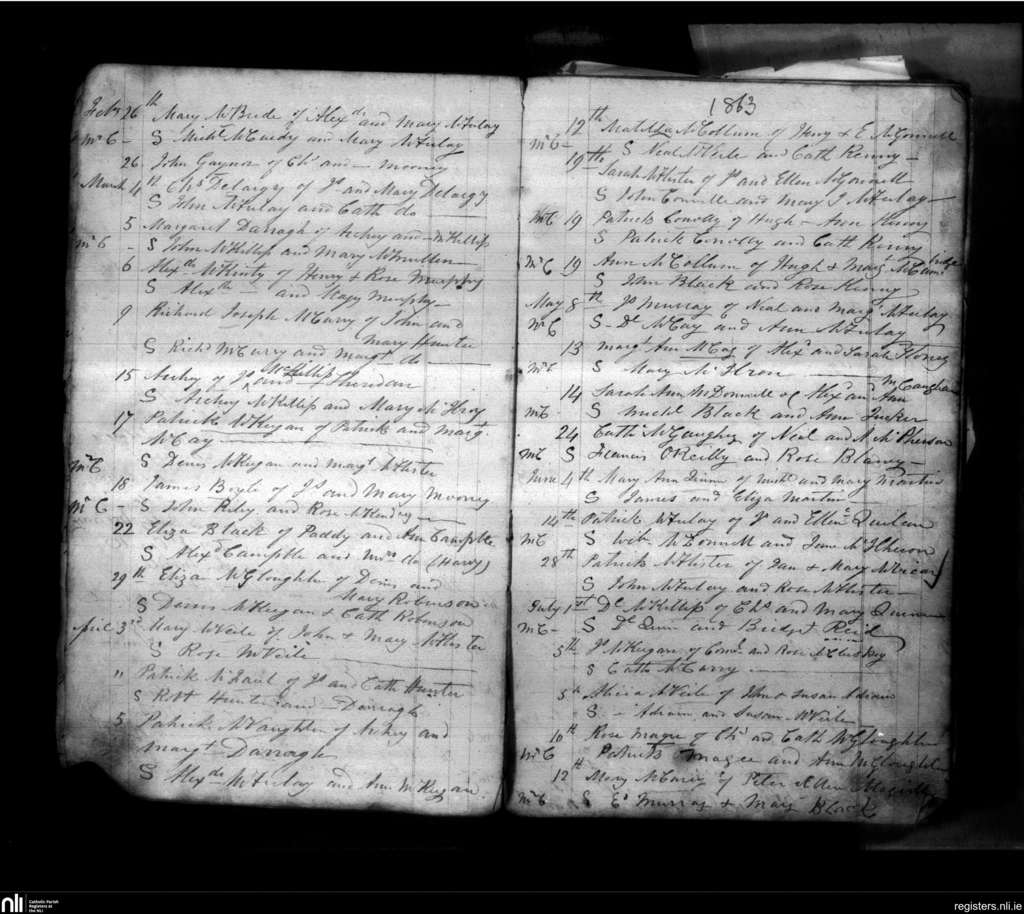 Feby 26th Mary McBride of Alexdr and Mary McAulay
McC - S Michl McCurdy and Mary McAulay
26 John Gaynor of Chs and - Mooney
March 4th Chs Delargy of Js and Mary Delargy
S John McAulay and Cath do
5 Margaret Darragh of Archey and - McKillip
McC - S John McKillip and Mary McMullen
6 Alexdr McKinty of Henry & Rose Murphy
S Alexdr - and Mary Murphy
9 Richard Joseph McCarry of John and
Mary Hunter
S Richd McCarry and Margt do
15 Archey of Js McKillip and - Sheridan
S Archey McKillip and Mary McIlroy
17 Patrick McKeegan of Patrick and Margt
McCay
McC S Denis McKeegan and Margt McAlister
18 James Boyle of Js and Mary Mooney
McC - S John and Rose
22 Eliza Black of Paddy and Ann Campble
S Alexd Campble and Mrs do (Harvy)
29th Eliza McGloughlin of Denis and
Mary Robinson
S Denis McKeegan & Cath Robinson
April 3rd Mary McVeile of John & Mary McAlister
S Rose McVeile
" Patrick McFaul of Js and Cath Hunter
S Robt Hunter and - Darragh
5 Patrick McVaughlen of Archey and
Margt Darragh
S Alexdr McAulay and Ann McKeegan.
1863
12th Matilda McCollum of Henry & E McConnell
McC - S Neal McVeile and Cath Kenny -
19th Sarah McAlister of Js and Ellen McConnell
S John Connell and Mary J McAulay
McC 19 Patrick Conway of Hugh - Ann Kenny
S Patrick Connolly and Cath Kenny
McC 19 Ann McCollum of Hugh & Margt McCambridge
S John Black and Rose Kenny
May 8th Js Murray of Neal and Margt McAulay
McC S - Dl McCay and Ann McAulay
13 Margt Ann McCay of Alexr and Sarah
McC S Mary McIlroy
14 Sarah Ann McDonnell of Alexr and Ann McCaughan
McC - S Michl Black and Ann Tucker
24 Cath McGaughey of Neal and A McPherson
McC S Francis O'Reilly and Rose Blaney -
June 4th Mary Ann Quinn of Michl and Mary Martin
S James and Eliza Martin
14th Patrick McAulay of Js and Ellen Quinlan
McC S Wm McDonnell and Jane McIlheron
28th Patrick McAlister of Dan & Mary McVicar
S John McAulay and Rose McAlister -
July 1st Dl McKillip of Chs and Mary Quinn
McC - S Dl Quinn and Bridget Reid
5th Js McKeegan of Corns and Rose McCluskey
S Cath McCarry
5th Alicia McVeile of John & Susan Adrains
S - Adrain and Susan McVeile
10th Rose Magee of Chs and Cath McGloughlin
McC Patrick Magee and Ann McGloughlin
12th Mary McCarry of Peter & Ann
McC S Es Murray & Mary Black
nli
Catholic Parish
Registers at
the NLI
registers.nli.ie